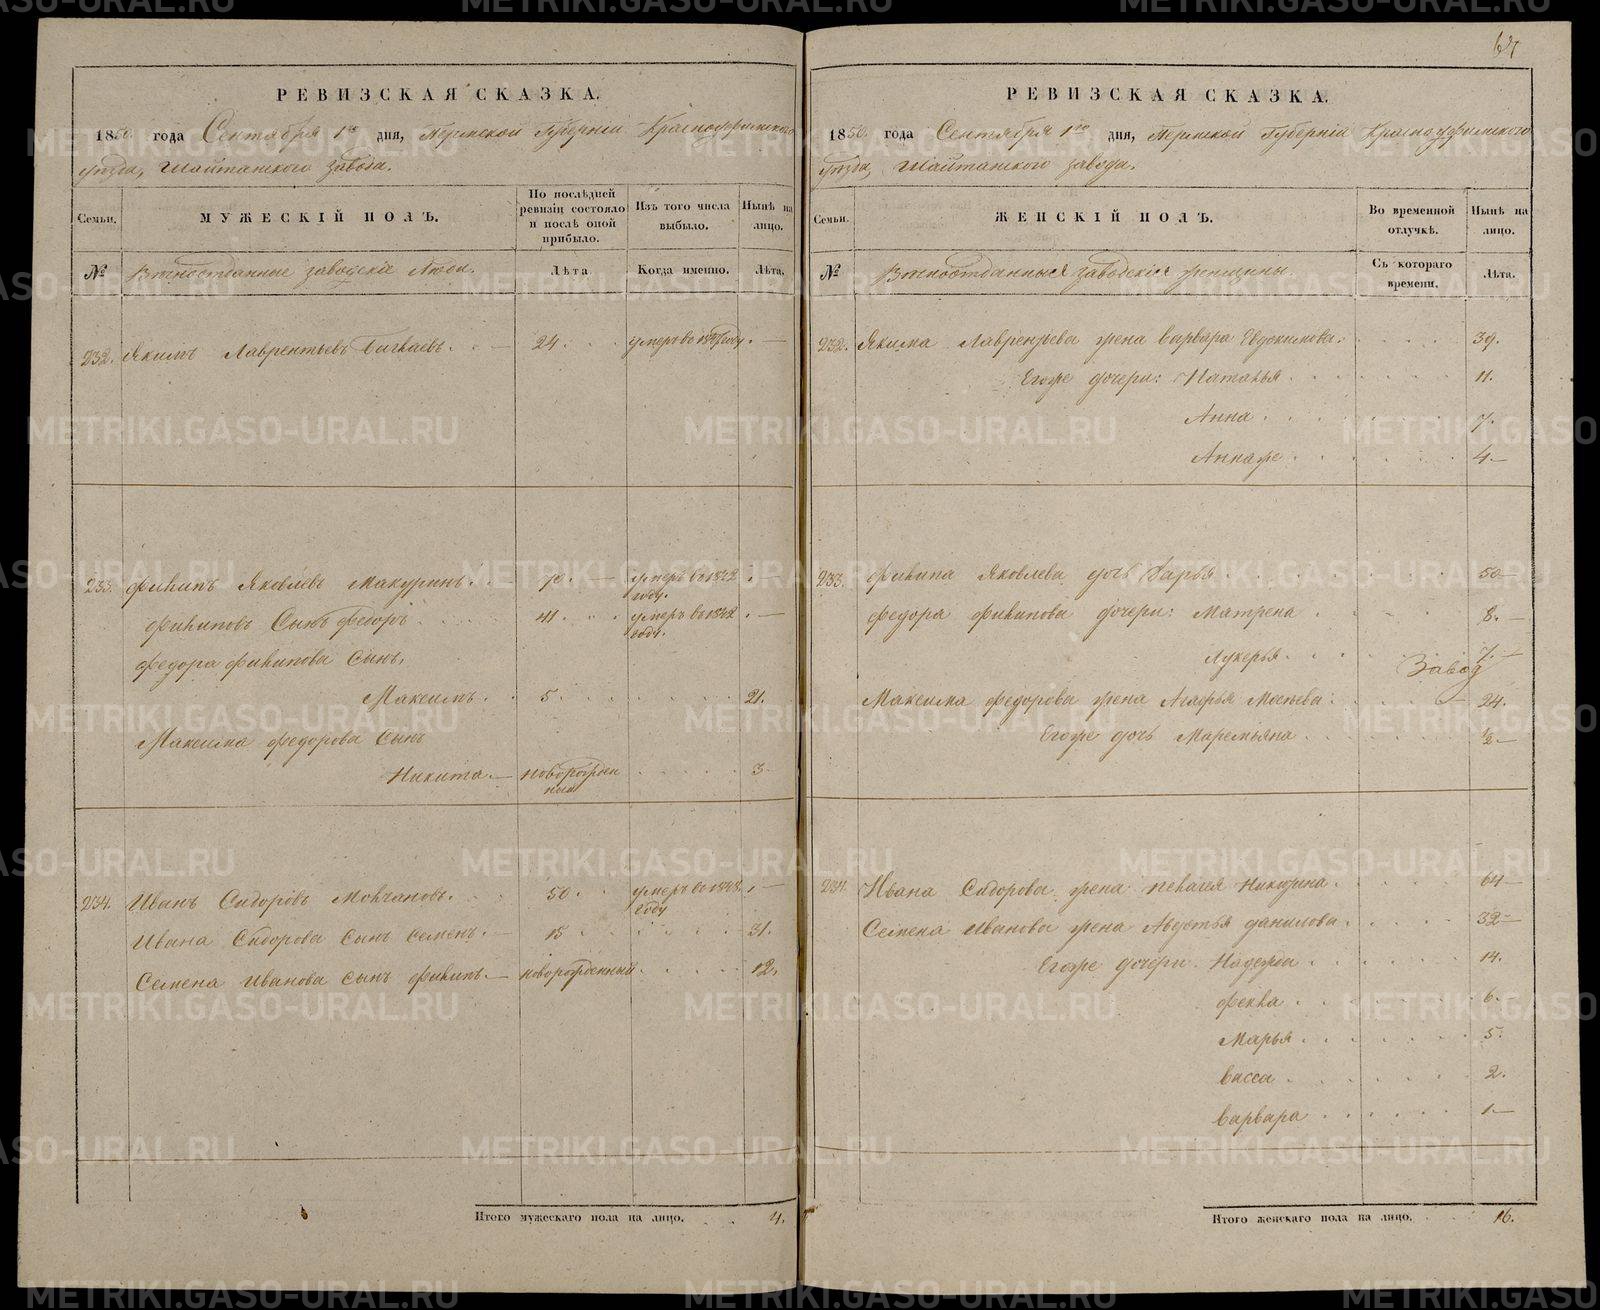 64
РЕВИЗСКАЯ СКАЗКА.
1850. года Сентября 1го дня, Пермской Губерніи Красноуфимского
уѣзда, Шайтанского завода.
Семьи.
МУЖЕСКІЙ ПОЛЪ.
По послѣдней ревизіи состояло и послѣ оной прибыло.
Изъ того числа выбыло.
Нынѣ на лицо.
№
Вѣчноотданные заводскіе Люди.
Лѣта
Когда именно.
Лѣта.
232. Якимъ Лаврентьевъ 24. умеръ во году. —
233. Филипъ Яковлевъ Макуринъ. 70. умеръ въ 1842 году. —
Филиповъ Сынъ Федоръ 41. умеръ въ 1842 году. —
Федора Филипова Сынъ,
Максимъ. 5. 21.
Максима Федорова Сынъ
Никита. — новорожденный 3
234. Иванъ Сидоровъ Молчановъ. 50. умеръ въ году —
Ивана Сидорова Сынъ Семенъ. — 15 31.
Семена Иванова Сынъ Филипъ. — новорожденный 12.
Итого мужескаго пола на лицо. 4.
РЕВИЗСКАЯ СКАЗКА.
1850. года Сентября 1го дня, Пермской Губерніи Красноуфимского
уѣзда, Шайтанского завода.
Семьи.
ЖЕНСКІЙ ПОЛЪ.
Во временной отлучкѣ.
Нынѣ на лицо.
№
Вѣчноотданныя заводскія женщины.
Съ котораго времени.
Лѣта.
232. Якима Лаврентьева жена Варвара Евдокимова. 39.
Егоже дочери: Наталья 11.
Анна 7.
Аннаже 4 —
233. Филипа Яковлева дочь Дарья 50 —
Федора Филипова дочери: Матрена 8. —
Лукерья 7. —
Завод
Максима Федорова жена Агафья Мосѣева 24.
Егоже дочь Маремьяна ½ —
234. Ивана Сидорова жена Пелагея Никитина 64 —
Семена Иванова жена Авдотья Данилова 32 —
Егоже дочери. Надежда 14.
Фекла 6.
Марья 5.
Васса 2.
Варвара 1. —
Итого женскаго пола на лицо. 16.
METRIKI.GASO-URAL.RU